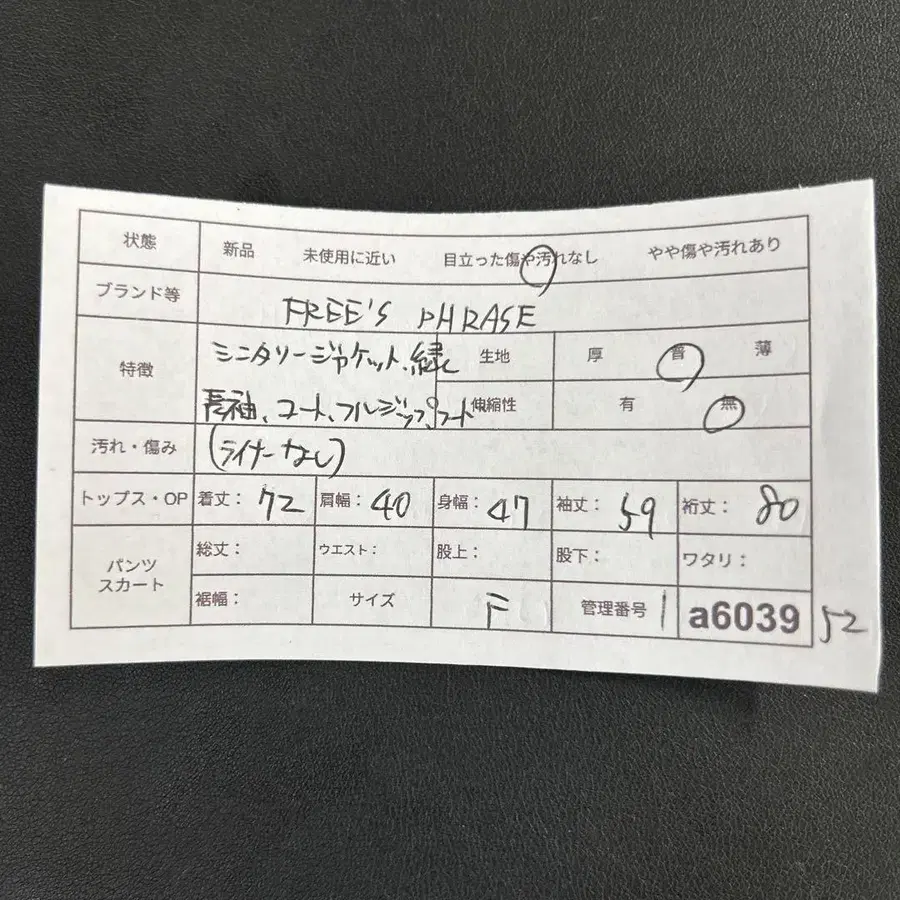 状態 新品 未使用に近い 目立った傷や汚れなし やや傷や汚れあり
ブランド等 FREE'S PHRASE
特徴 ミニタリージャケット、緑 生地 厚 普 薄
長袖、コート、フルジップ、フード 伸縮性 有 無
汚れ・傷み (ライナーなし)
トップス・OP 着丈: 72 肩幅: 40 身幅: 47 袖丈: 59 裄丈: 80
パンツ スカート 総丈: ウエスト: 股上: 股下: ワタリ:
裾幅: サイズ F 管理番号 1 a6039 52